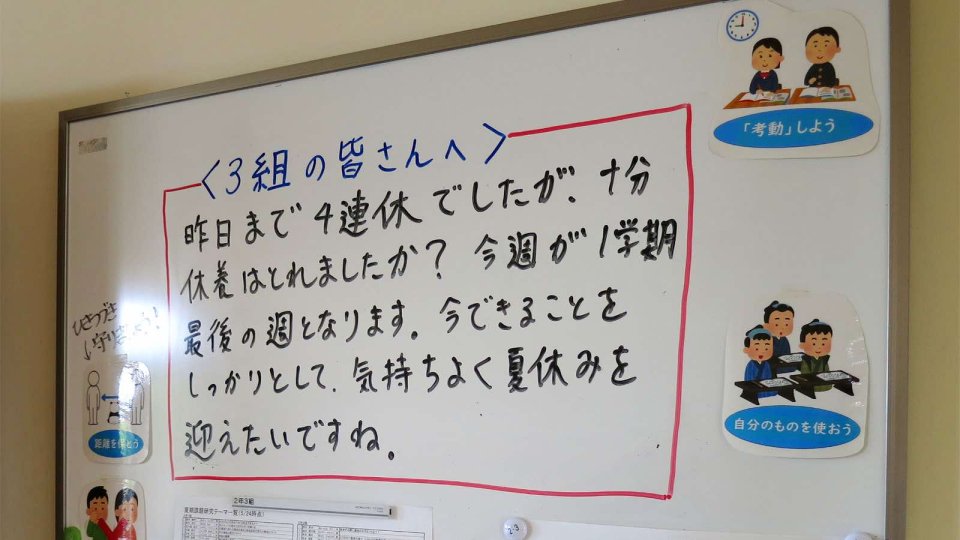 〈3組の皆さんへ〉
昨日まで4連休でしたが、十分
休養はとれましたか？今週が1学期
最後の週となります。今できることを
しっかりとして、気持ちよく夏休みを
迎えたいですね。
「考動」しよう
自分のものを使おう
ひきつづき
距離を保とう
2年3組
夏期課題研究テーマ一覧(5/24時点)
23